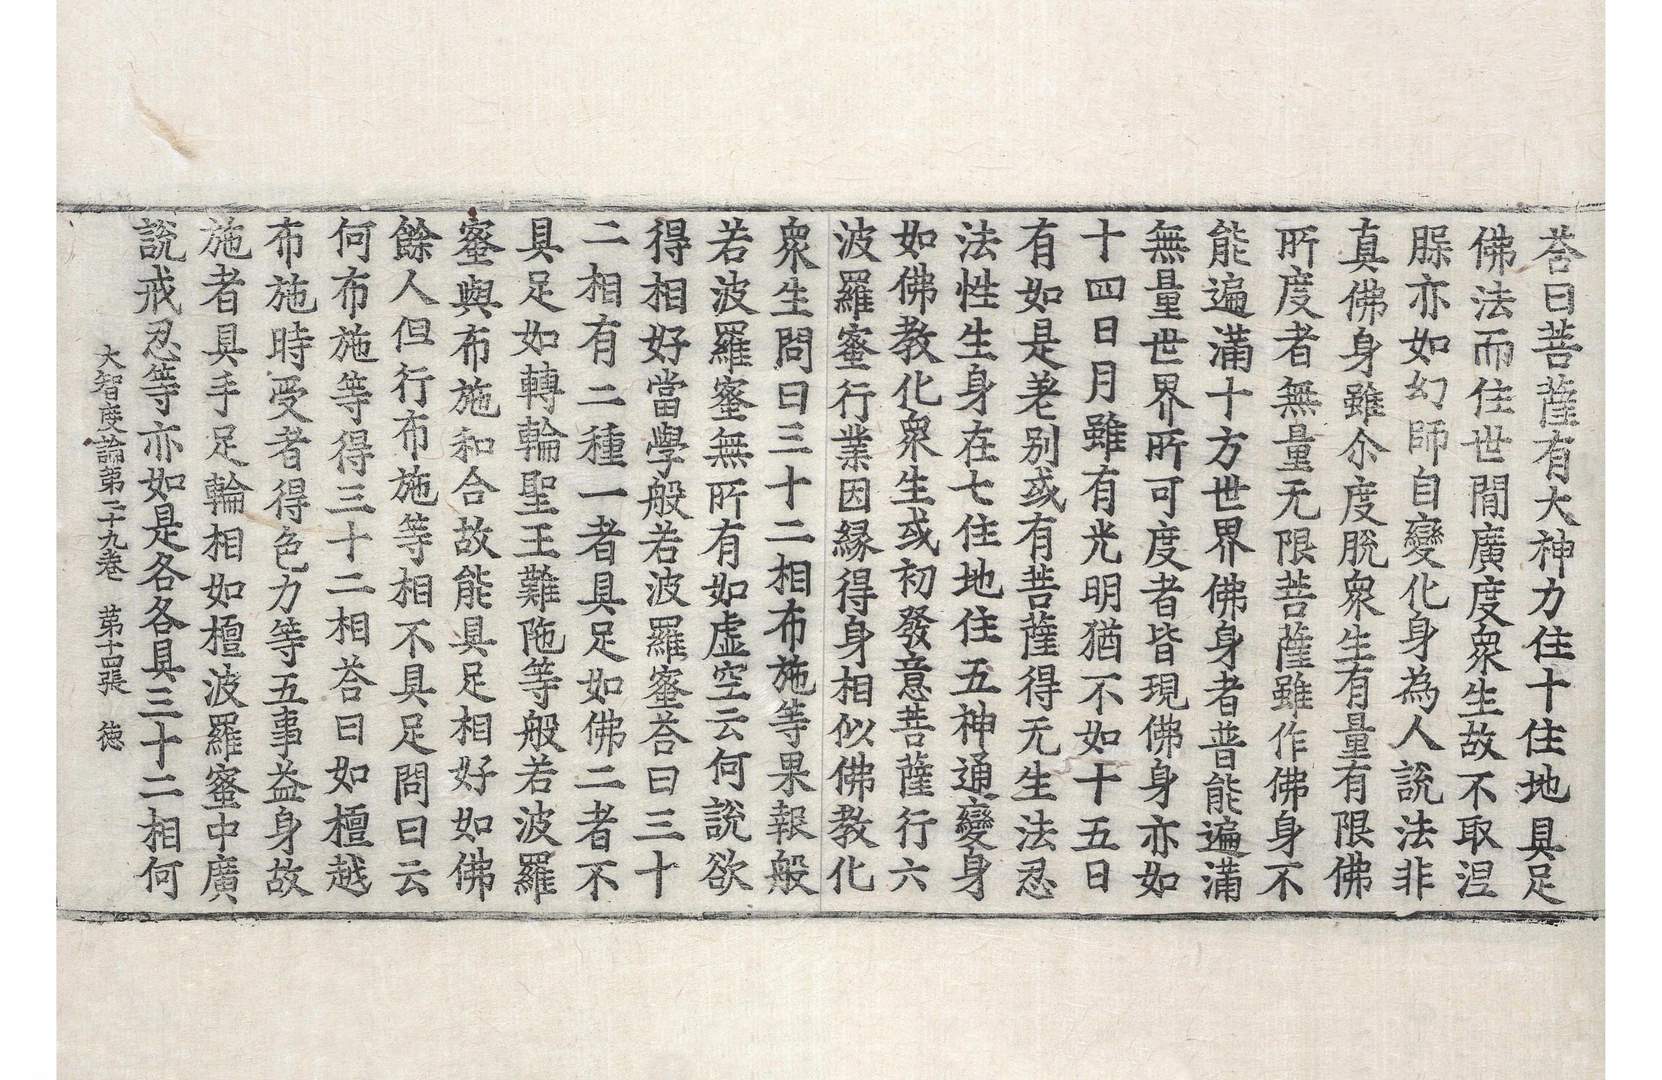 荅曰菩薩有大神力住十住地具足
佛法而住世閒廣度衆生故不取涅
𦙆亦如幻師自變化身為人說法非
真佛身雖尒度脫衆生有量有限佛
所度者無量无限菩薩雖作佛身不
能遍滿十方世界佛身者普能遍滿
無量世界所可度者皆現佛身亦如
十四日月雖有光明猶不如十五日
有如是差别或有菩薩得无生法忍
法性生身在七住地住五神通變身
如佛教化衆生或初發意菩薩行六
波羅蜜行業因緣得身相似佛教化
衆生問曰三十二相布施等果報般
若波羅蜜無所有如虛空云何說欲
得相好當學般若波羅蜜荅曰三十
二相有二種一者具足如佛二者不
具足如轉輪聖王難陁等般若波羅
蜜與布施和合故能具足相好如佛
餘人但行布施等相不具足問曰云
何布施等得三十二相荅曰如檀越
布施時受者得色力等五事益身故
施者具手足輪相如檀波羅蜜中廣
說戒忍等亦如是各各具三十二相何
大智度論第二十九卷　第十四張　徳